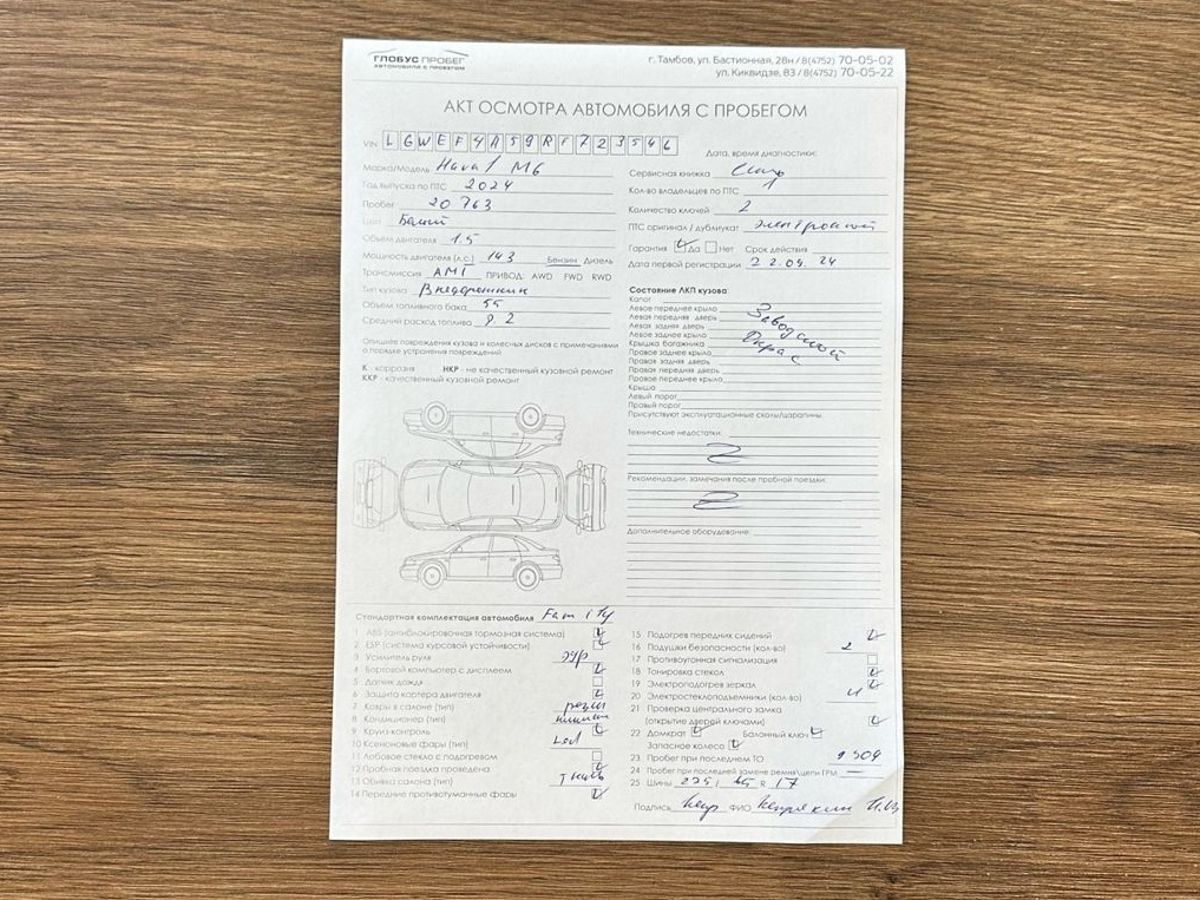 ГЛОБУС ПРОБЕГ
АВТОМОБИЛИ С ПРОБЕГОМ
г. Тамбов, ул. Бастионная, 28н / 8(4752) 70-05-02
ул. Киквидзе, 83 / 8(4752) 70-05-22
АКТ ОСМОТРА АВТОМОБИЛЯ С ПРОБЕГОМ
VIN LGWEF4A59RF723546
Марка/Модель Haval M6
Год выпуска по ПТС 2024
Пробег 20 763
Цвет Белый
Объем двигателя 1.5
Мощность двигателя (л.с.) 143 Бензин Дизель
Трансмиссия АМТ ПРИВОД: AWD FWD RWD
Тип кузова Внедорожник
Объем топливного бака 55
Средний расход топлива 9.2
Опишите повреждения кузова и колесных дисков с примечаниями
о порядке устранения повреждений
К - коррозия НКР - не качественный кузовной ремонт
ККР - качественный кузовной ремонт
Дата, время диагностики:
Сервисная книжка
Кол-во владельцев по ПТС 1
Количество ключей 2
ПТС оригинал / дубликат электронный
Гарантия Да Нет Срок действия
Дата первой регистрации 22.04.24
Состояние ЛКП кузова:
Капот
Левое переднее крыло
Левая передняя дверь
Левая задняя дверь
Левое заднее крыло
Крышка багажника
Правое заднее крыло
Правая задняя дверь
Правая передняя дверь
Правое переднее крыло
Крыша
Левый порог
Правый порог
Заводской
Окрас
Присутствуют эксплуатационные сколы/царапины
Технические недостатки:
Рекомендации, замечания после пробной поездки:
Дополнительное оборудование:
Стандартная комплектация автомобиля Family
1 ABS (антиблокировочная тормозная система)
2 ESP (система курсовой устойчивости)
3 Усилитель руля ЭУР
4 Бортовой компьютер с дисплеем
5 Датчик дождя
6 Защита картера двигателя
7 Ковры в салоне (тип) резин
8 Кондиционер (тип)
9 Круиз-контроль
10 Ксеноновые фары (тип) Led
11 Лобовое стекло с подогревом
12 Пробная поездка проведена
13 Обивка салона (тип) ткань
14 Передние противотуманные фары
15 Подогрев передних сидений
16 Подушки безопасности (кол-во) 2
17 Противоугонная сигнализация
18 Тонировка стекол
19 Электроподогрев зеркал
20 Электростеклоподъемники (кол-во) 4
21 Проверка центрального замка
(открытие дверей ключами)
22 Домкрат Балонный ключ
Запасное колесо
23 Пробег при последнем ТО 9504
24 Пробег при последней замене ремня/цепи ГРМ —
25 Шины 225/65 R 17
Подпись ФИО